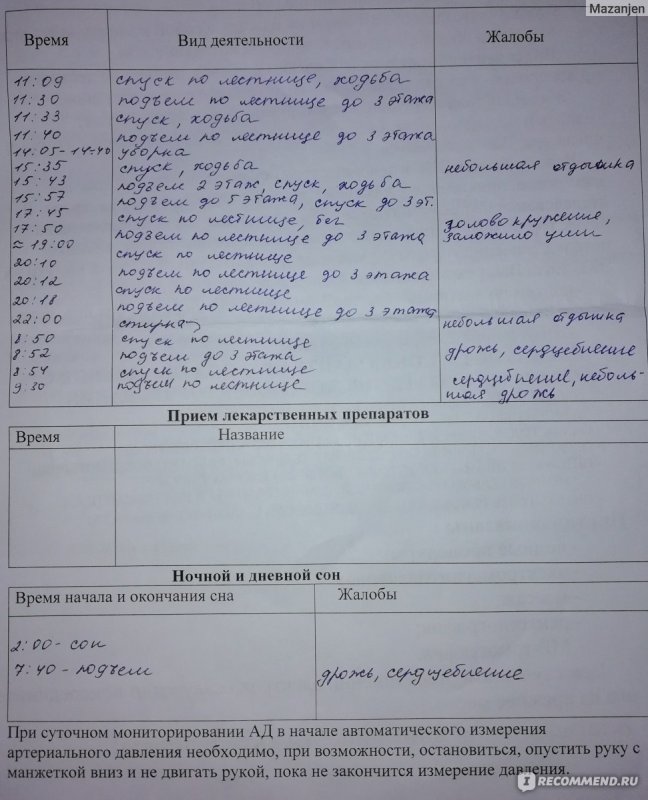 Mazanjen
Время Вид деятельности Жалобы
11:09 спуск по лестнице, ходьба
11:30 подъем по лестнице до 3 этажа
11:33 спуск, ходьба
11:40 подъем по лестнице до 3 этажа
14:05-14:40 уборка
15:35 спуск, ходьба небольшая отдышка
15:43 подъем 2 этаж, спуск, ходьба
15:57 подъем до 5 этажа, спуск до 3 эт.
17:45 спуск по лестнице, бег головокружение,
17:50 подъем по лестнице до 3 этажа заложило уши
≈ 19:00 спуск по лестнице
20:10 подъем по лестнице до 3 этажа
20:12 спуск по лестнице
20:18 подъем по лестнице до 3 этажа
22:00 стирка небольшая отдышка
8:50 спуск по лестнице
8:52 подъем до 3 этажа дрожь, сердцебиение
8:54 спуск по лестнице
9:30 подъем по лестнице сердцебиение, неболь-
шая дрожь
Прием лекарственных препаратов
Время Название
Ночной и дневной сон
Время начала и окончания сна Жалобы
2:00 - сон
7:40 - подъем дрожь, сердцебиение
При суточном мониторировании АД в начале автоматического измерения
артериального давления необходимо, при возможности, остановиться, опустить руку с
манжеткой вниз и не двигать рукой, пока не закончится измерение давления.
IRECOMMEND.RU